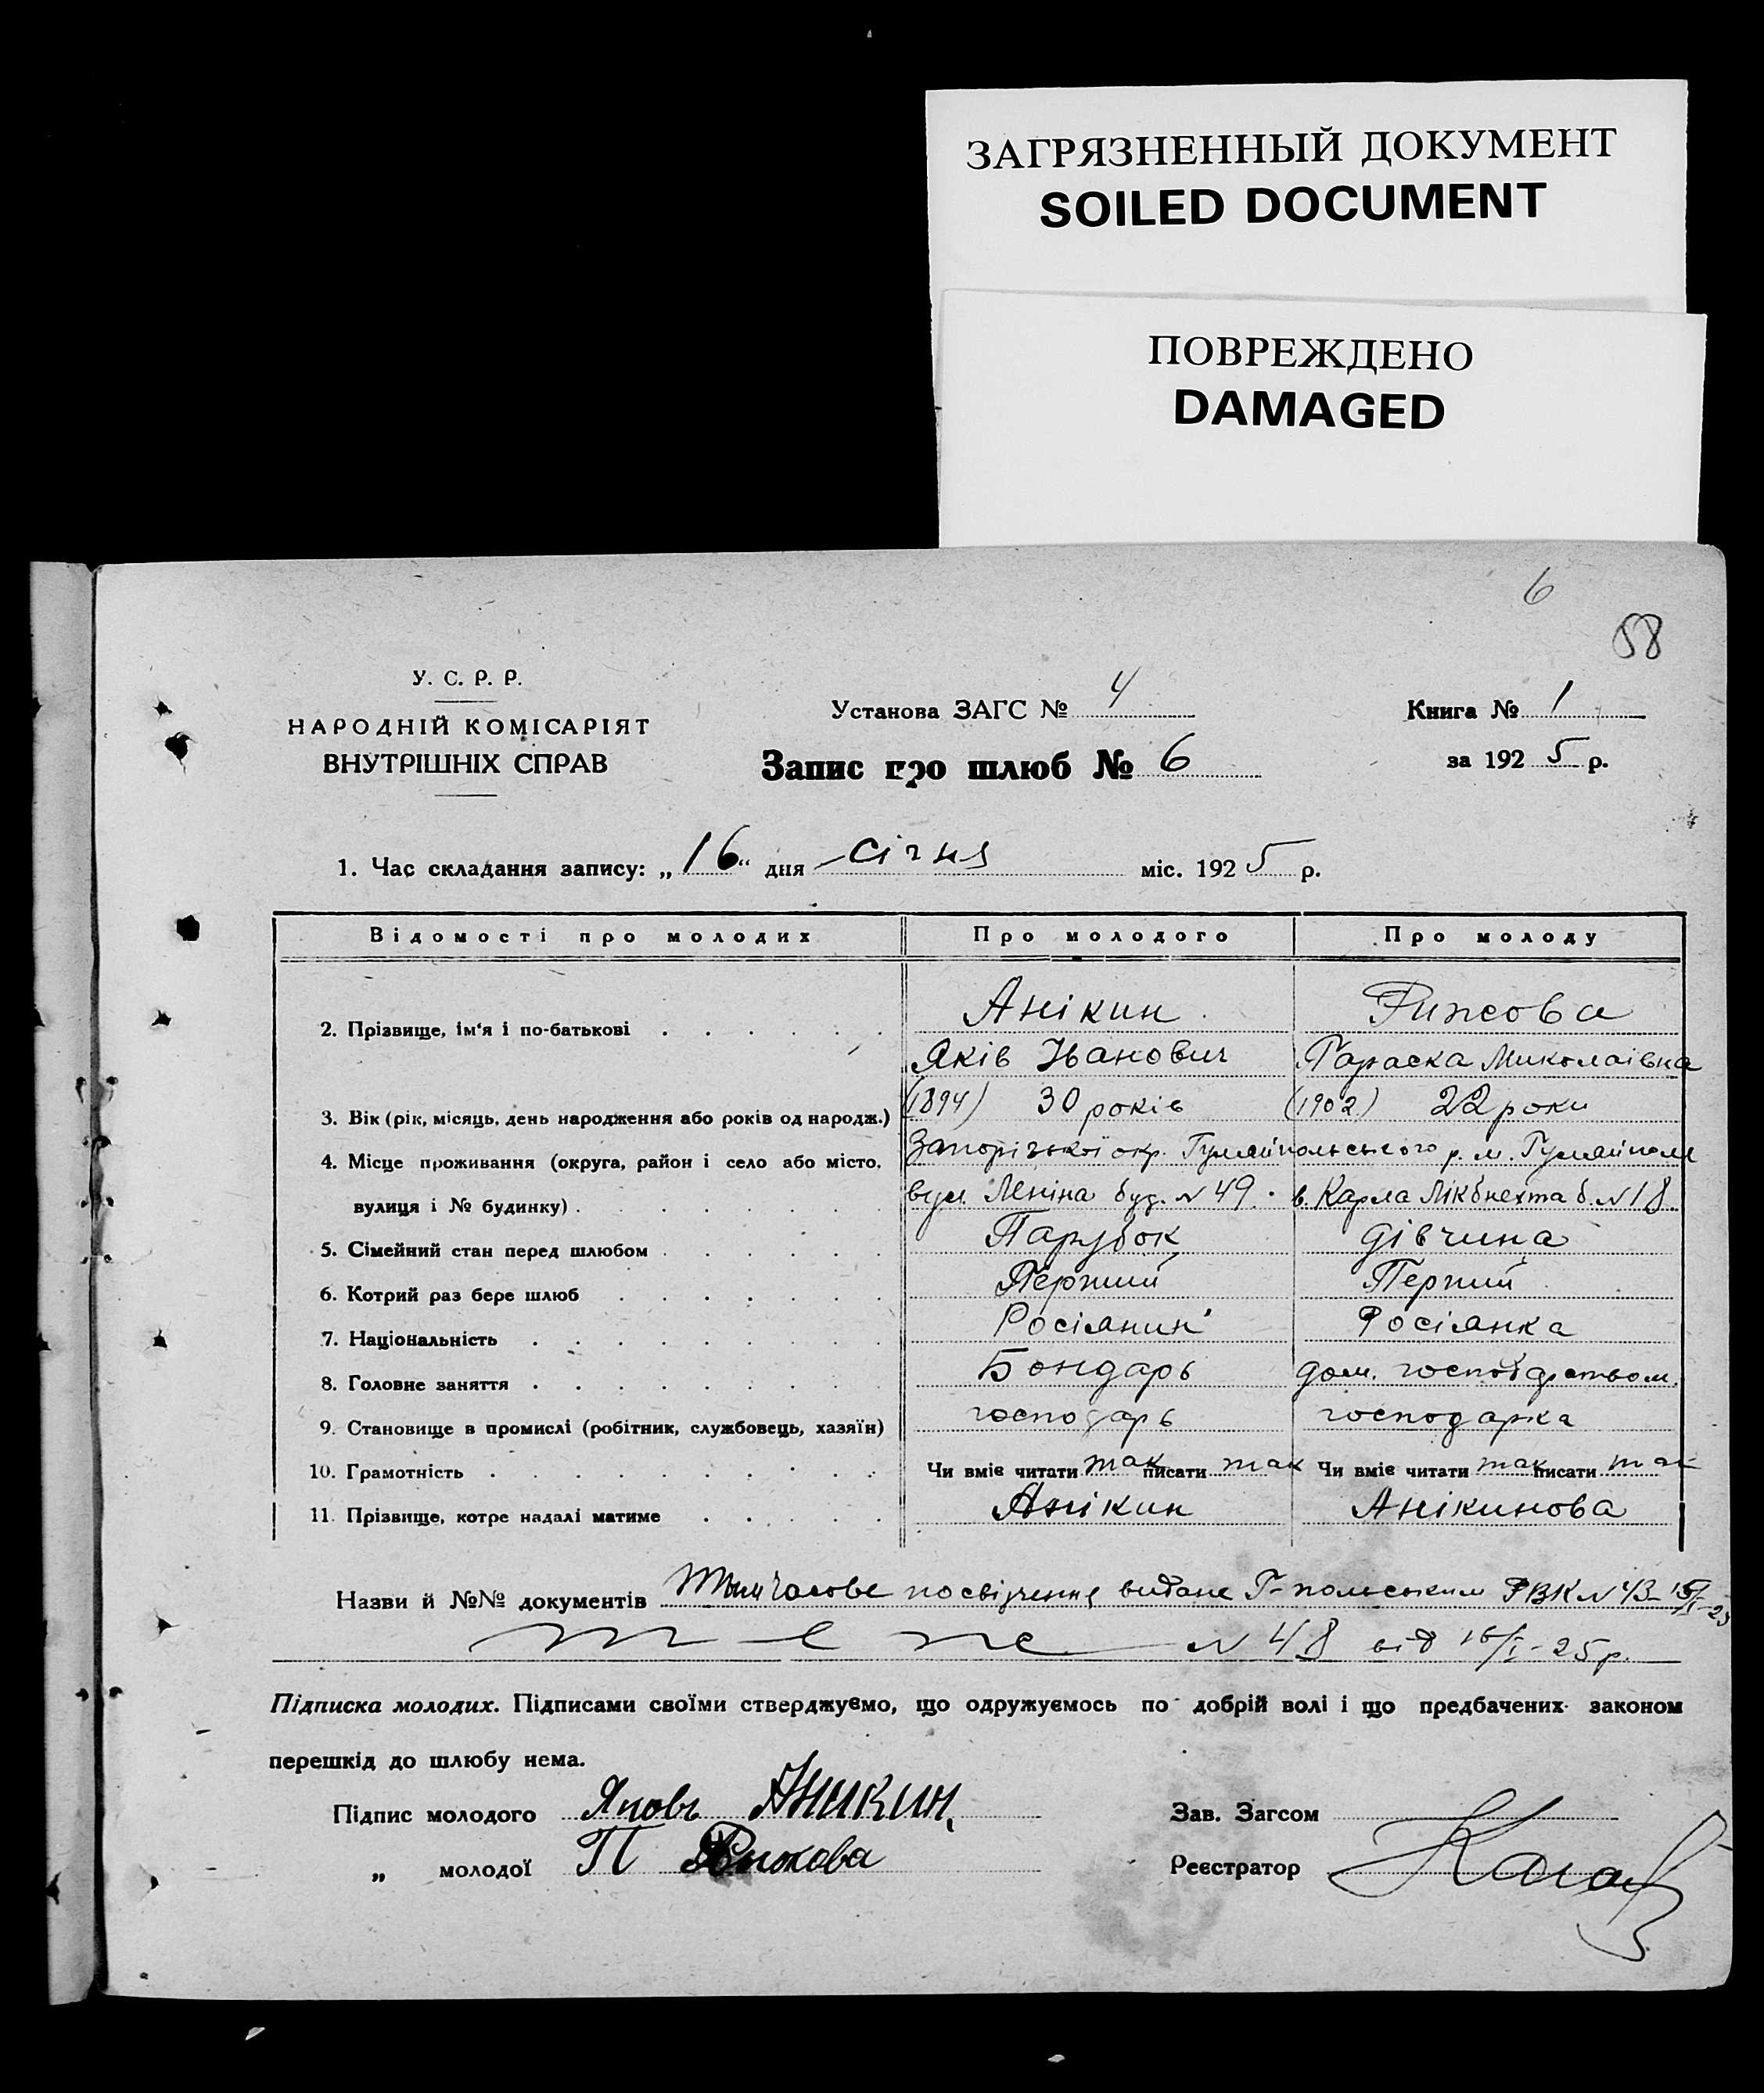 ЗАГРЯЗНЕННЫЙ ДОКУМЕНТ
SOILED DOCUMENT
ПОВРЕЖДЕНО
DAMAGED
6
58
У. С. Р. Р.
НАРОДНІЙ КОМІСАРІЯТ
ВНУТРІШНІХ СПРАВ
Установа ЗАГС № 4
Запис про шлюб № 6
Книга № 1
за 1925 р.
1. Час складання запису: „16“ дня січня міс. 1925 р.
Відомості про молодих Про молодого Про молоду
2. Прізвище, ім'я і по-батькові Анікин Рижова
Яків Іванович Параска Миколаівна
3. Вік (рік, місяць, день народження або років од народж.) (1894) 30 років (1902) 22 роки
4. Місце проживання (округа, район і село або місто, Запорізької окр. Гуляйпольського р. м. Гуляйполе
вулиця і № будинку) вул. Леніна буд. № 49. в. Карла Лікбнехта б. № 18.
5. Сімейний стан перед шлюбом Парубок дівчина
6. Котрий раз бере шлюб Перший Перший
7. Національність Росіянин Росіянка
8. Головне заняття Бондарь дом. господарством.
9. Становище в промислі (робітник, службовець, хазяїн) господарь господарка
10. Грамотність Чи вміє читати так писати так Чи вміє читати так писати так
11. Прізвище, котре надалі матиме Анікин Анікинова
Назви й №№ документів Тимчасове посвідчення видане Г-польським РВК № 43- 15/I-25
теж № 48 від 16/I-25 р.
Підписка молодих. Підписами своїми стверджуємо, що одружуємось по добрій волі і що предбачених законом
перешкід до шлюбу нема.
Підпис молодого Яковъ Аникин.
„ молодої П Рыжова
Зав. Загсом
Реєстратор